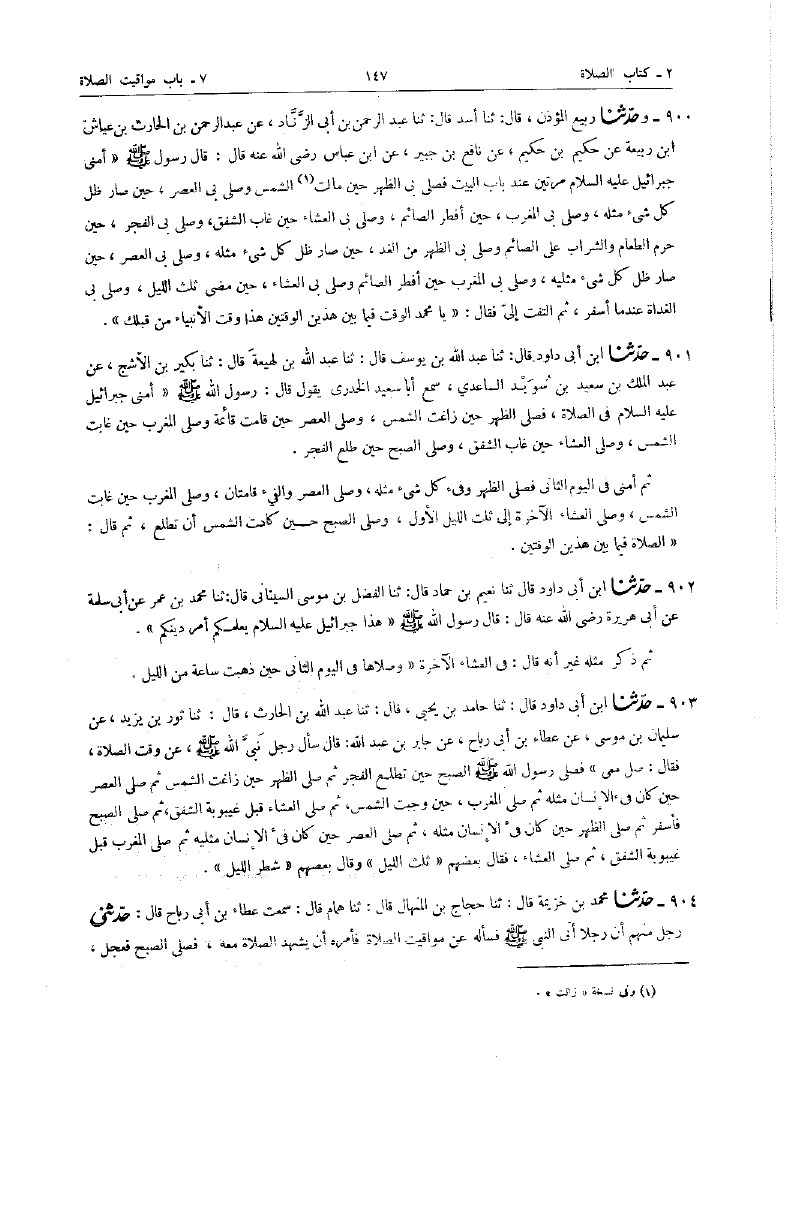 ٢ ـ كتاب الصلاة ١٤٧ ٧ ـ باب مواقيت الصلاة
٩٠٠ ـ وحدثنا ربيع المؤذن ، قال: ثنا أسد قال: ثنا عبد الرحمن بن أبى الزَّنَّاد ، عن عبدالرحمن بن الحارث بن عياش
ابن ربيعة عن حكيم بن حكيم ، عن نافع بن جبير ، عن ابن عباس رضى الله عنه قال : قال رسول ﷺ « أمنى
جبرائيل عليه السلام مرتين عند باب البيت فصلى بى الظهر حين مالت(١) الشمس وصلى بى العصر ، حين صار ظل
كل شىء مثله ، وصلى بى المغرب ، حين أفطر الصائم ، وصلى بى العشاء حين غاب الشفق، وصلى بى الفجر ، حين
حرم الطعام والشراب على الصائم وصلى بى الظهر من الغد ، حين صار ظل كل شىء مثله ، وصلى بى العصر ، حين
صار ظل كل شىء مثليه ، وصلى بى المغرب حين أفطر الصائم وصلى بى العشاء ، حين مضى ثلث الليل ، وصلى بى
الغداة عندما أسفر ، ثم التفت إلىّ فقال : « يا محمد الوقت فيما بين هذين الوقتين هذا وقت الأنبياء من قبلك » .
٩٠١ ـ حدثنا ابن أبى داود قال: ثنا عبد الله بن يوسف قال : ثنا عبد الله بن لهيعة قال : ثنا بكير بن الأشج ، عن
عبد الملك بن سعيد بن سُوَيْد الساعدي ، سمع أبا سعيد الخدرى يقول قال : رسول الله ﷺ « أمنى جبرائيل
عليه السلام فى الصلاة ، فصلى الظهر حين زاغت الشمس ، وصلى العصر حين قامت قائمة وصلى المغرب حين غابت
الشمس ، وصلى العشاء حين غاب الشفق ، وصلى الصبح حين طلع الفجر .
ثم أمنى فى اليوم الثانى فصلى الظهر وفىء كل شىء مثله ، وصلى العصر والفىء قامتان ، وصلى المغرب حين غابت
الشمس ، وصلى العشاء الآخرة إلى ثلث الليل الأول ، وصلى الصبح حـــين كادت الشمس أن تطلع ، ثم قال :
« الصلاة فيما بين هذين الوقتين .
٩٠٢ ـ حدثنا ابن أبى داود قال ثنا نعيم بن حماد قال: ثنا الفضل بن موسى السينانى قال: ثنا محمد بن عمر عن أبى سلمة
عن أبى هريرة رضى الله عنه قال : قال رسول الله ﷺ « هذا جبرائيل عليه السلام يعلمكم أمر دينكم » .
ثم ذكر مثله غير أنه قال : فى العشاء الآخرة « وصلاها فى اليوم الثانى حين ذهبت ساعة من الليل .
٩٠٣ ـ حدثنا ابن أبى داود قال : ثنا حامد بن يحيى ، قال : ثنا عبد الله بن الحارث ، قال : ثنا ثور بن يزيد ، عن
سليمان بن موسى ، عن عطاء بن أبى رباح ، عن جابر بن عبد الله: قال سأل رجل نَبىَّ الله ﷺ ، عن وقت الصلاة ،
فقال : صل معى » فصلى رسول الله ﷺ الصبح حين تطلـع الفجر ثم صلى الظهر حين زاغت الشمس ثم صلى العصر
حين كان فىء الإنسان مثله ثم صلى المغرب ، حين وجبت الشمس، ثم صلى العشاء قبل غيبوبة الشفق ، ثم صلى الصبح
فأسفر ثم صلى الظهر حين كان فىء الإنسان مثله ، ثم صلى العصر حين كان فىء الإنسان مثليه ثم صلى المغرب قبل
غيبوبة الشفق ، ثم صلى العشاء ، فقال بعضهم « ثلث الليل » وقال بعضهم « شطر الليل » .
٩٠٤ ـ حدثنا محمد بن خزيمة قال : ثنا حجاج بن المنهال قال : ثنا همام قال : سمعت عطاء بن أبى رباح قال : حدثنى
رجل منهم أن رجلا أتى النبى ﷺ فسأله عن مواقيت الصلاة فأمره أن يشهد الصلاة معه ، فصلى الصبح فعجل ،
(١) وفى نسخة « زالت » .